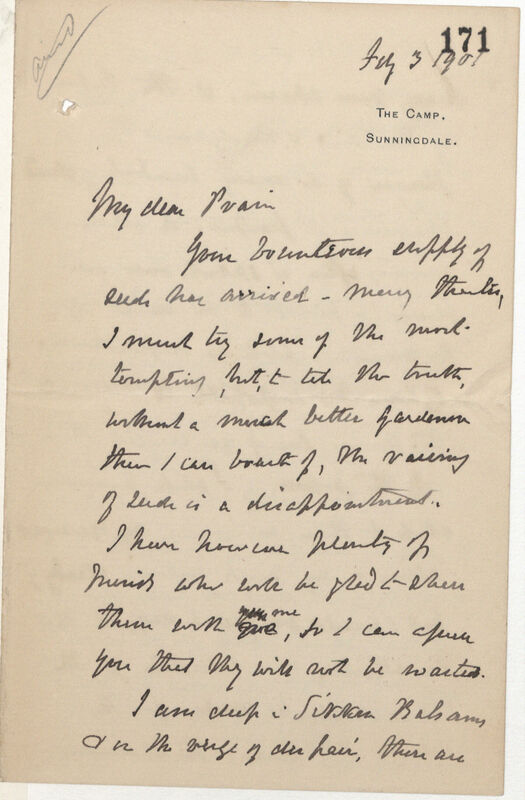 171
Feby 3 1901
THE CAMP.
SUNNINGDALE.
My dear Prain
Your bounteous supply of
seeds has arrived - many thanks,
I must try some of the most
tempting, but, to tell the truth,
without a much better Gardener
than I can boast of, the raising
of seeds is a disappointment.
I have however plenty of
friends who will be glad to share
them with me, so I can assure
you that they will not be wasted.
I am deep i Sikkim Balsams
& on the verge of despair, there are